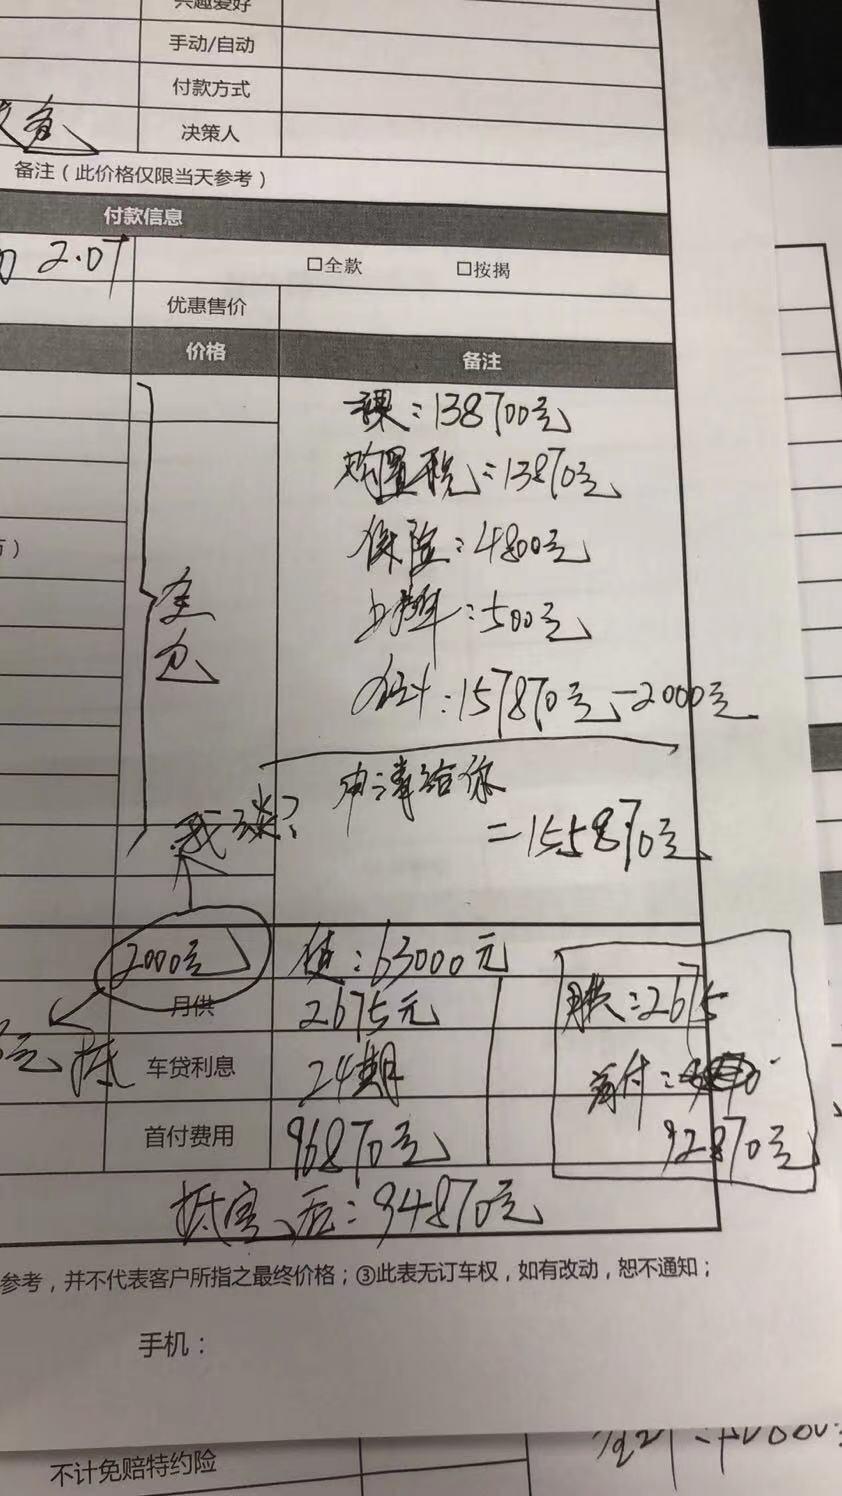 兴趣爱好
手动/自动
付款方式
决策人
备注（此价格仅限当天参考）
付款信息
2.0T
□全款 □按揭
优惠售价
价格 备注
裸：138700元
购置税：13870元
保险：4800元
上牌：500元
合计：157870元-2000元
全包
申请给你
我谈？
=155870元
2000元 贷：63000元
月供 2675元 月供：2675
元 抵 车贷利息 24期 首付：
首付费用 96870元 92870元
抵完后：94870元
参考，并不代表客户所指之最终价格；③此表无订车权，如有改动，恕不通知；
手机：
不计免赔特约险